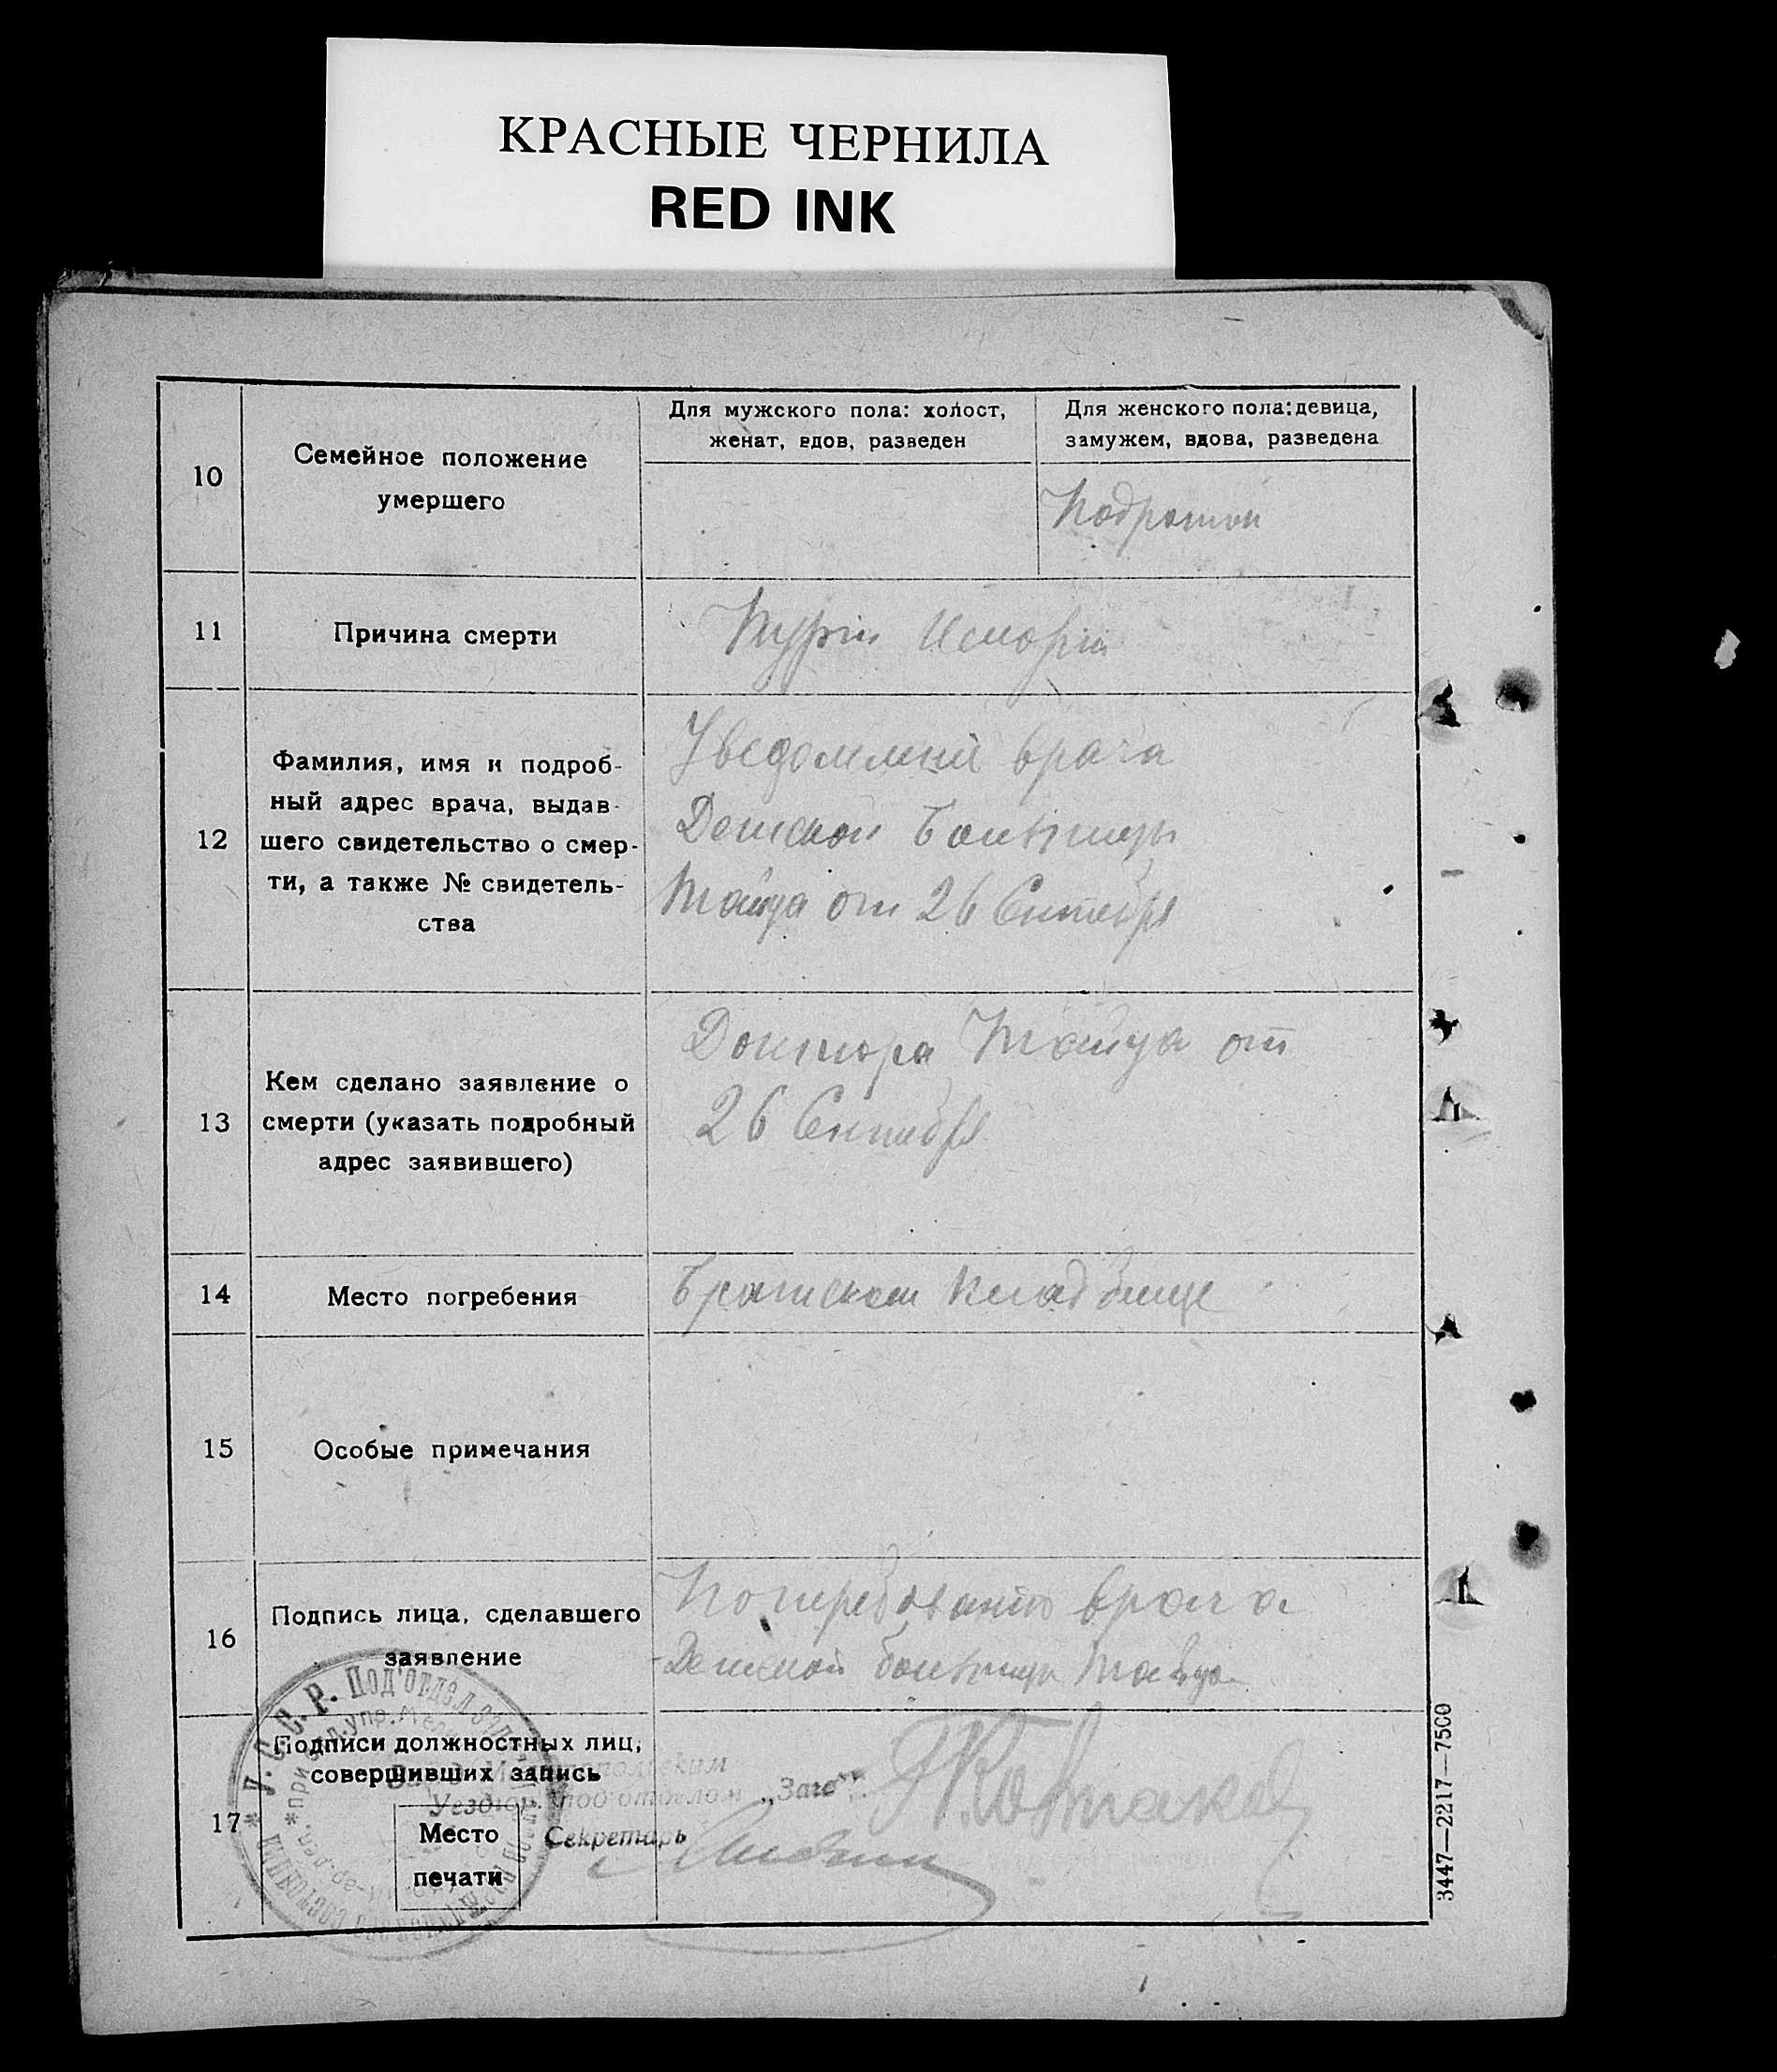 КРАСНЫЕ ЧЕРНИЛА
RED INK
10
Семейное положение
умершего
Для мужского пола: холост,
женат, вдов, разведен
Для женского пола: девица,
замужем, вдова, разведена
Подросток
11
Причина смерти
12
Фамилия, имя и подроб-
ный адрес врача, выдав-
шего свидетельство о смер-
ти, а также № свидетель-
ства
врача
Детской Больницы
от 26 Сентября
13
Кем сделано заявление о
смерти (указать подробный
адрес заявившего)
Доктора от
26 Сентября
14
Место погребения
Братском Кладбище
15
Особые примечания
16
Подпись лица, сделавшего
заявление
врача
Детской больницы
У. С. С. Р. Под'отдел
17
Подписи должностных лиц,
совершивших запись
Уездном под'отделом „Загс“
Место
печати
Секретарь
3447—2217—7500